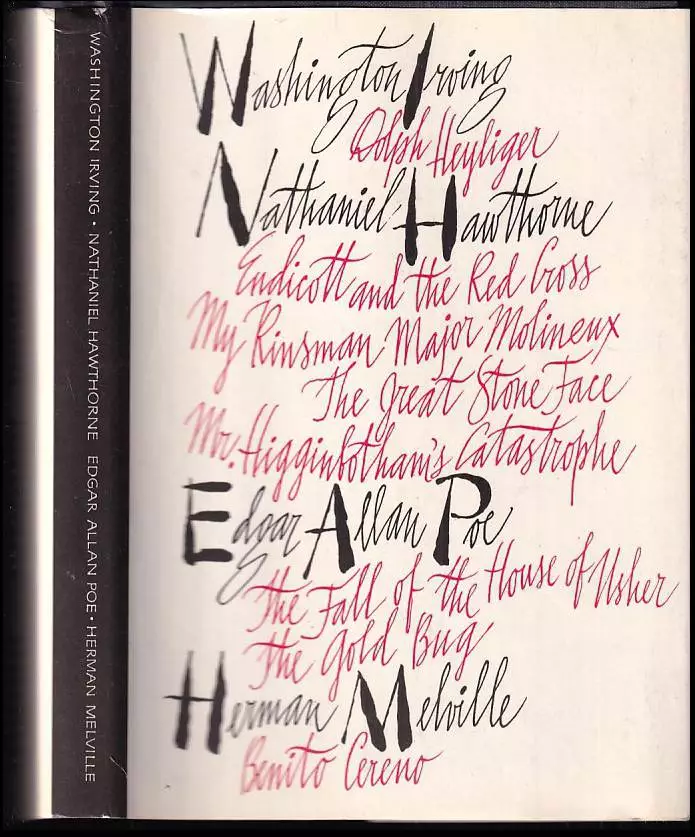 WASHINGTON IRVING · NATHANIEL HAWTHORNE EDGAR ALLAN POE · HERMAN MELVILLE
Washington Irving
Dolph Heyliger
Nathaniel Hawthorne
Endicott and the Red Cross
My Kinsman Major Molineux
The Great Stone Face
Mr. Higginbotham's Catastrophe
Edgar Allan Poe
The Fall of the House of Usher
The Gold Bug
Herman Melville
Benito Cereno